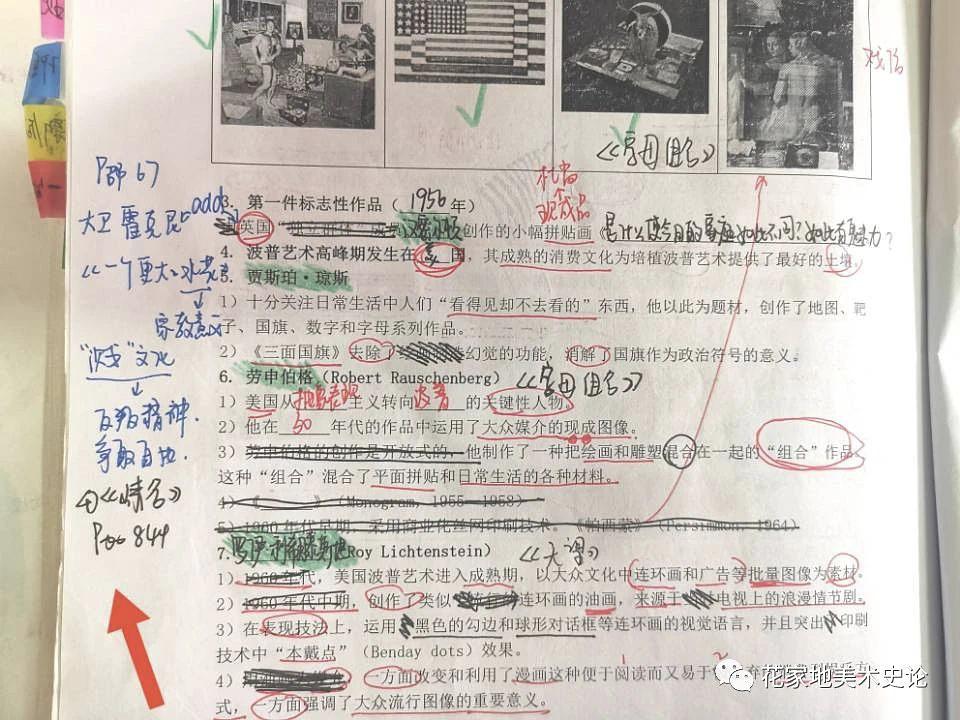 戏份
《字母组合》
P部67
大卫霍克尼 add
《一个更大的水花》
宗教意义
"嬉皮"文化
反叛精神.
争取自由.
P 844
杜尚
现成品
3. 第一件标志性作品（ 1956 年）
英国 创作的小幅拼贴画《是什么使今日的家庭如此不同？如此有魅力？
4. 波普艺术高峰期发生在美国，其成熟的消费文化为培植波普艺术提供了最好的土壤。
5. 贾斯珀·琼斯
1）十分关注日常生活中人们“看得见却不去看的”东西，他以此为题材，创作了地图、靶
子、国旗、数字和字母系列作品。
2）《三面国旗》去除了 幻觉的功能，消解了国旗作为政治符号的意义。
6. 劳申伯格（Robert Rauschenberg）《字母组合》
1）美国从抽象表现主义转向波普的关键性人物。
2）他在 50 年代的作品中运用了大众媒介的现成图像。
3）劳申伯格的创作是开放式的，他制作了一种把绘画和雕塑混合在一起的“组合”作品，
这种“组合”混合了平面拼贴和日常生活的各种材料。
4）《 》（Monogram, 1955-1958）
5）1960 年代早期，采用商业化丝网印刷技术。《帕西蒙》（Persimmon, 1964）
7. 罗伊·利希滕斯坦（Roy Lichtenstein）
1）1960 年代，美国波普艺术进入成熟期，以大众文化中连环画和广告等批量图像为素材。
2）1960 年代中期，创作了类似 连环画的油画，来源于 电视上的浪漫情节剧。
3）在表现技法上，运用 黑色的勾边和球形对话框等连环画的视觉语言，并且突出 印刷
技术中“本戴点”（Benday dots）效果。
4） 一方面改变和利用了漫画这种便于阅读而又易于
式，一方面强调了大众流行图像的重要意义。
花家地美术史论